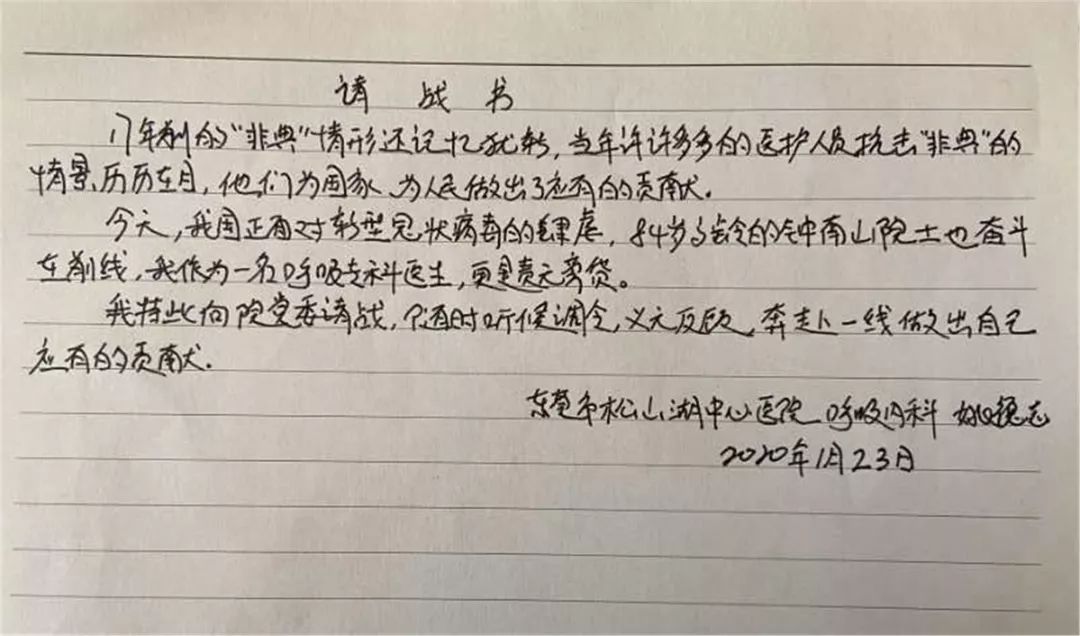 请战书
17年前的“非典”情形还记忆犹新,当年许许多多的医护人员抗击“非典”的
情景,历历在目,他们为国家、为人民做出了应有的贡献。
今天,我国正面对新型冠状病毒的肆虐,84岁高龄的钟南山院士也奋斗
在前线,我作为一名呼吸专科医生,更是责无旁贷。
我特此向院党委请战,随时听候调令,义无反顾,奔赴一线做出自己
应有的贡献.
东莞市松山湖中心医院 呼吸内科 姚德志
2020年1月23日